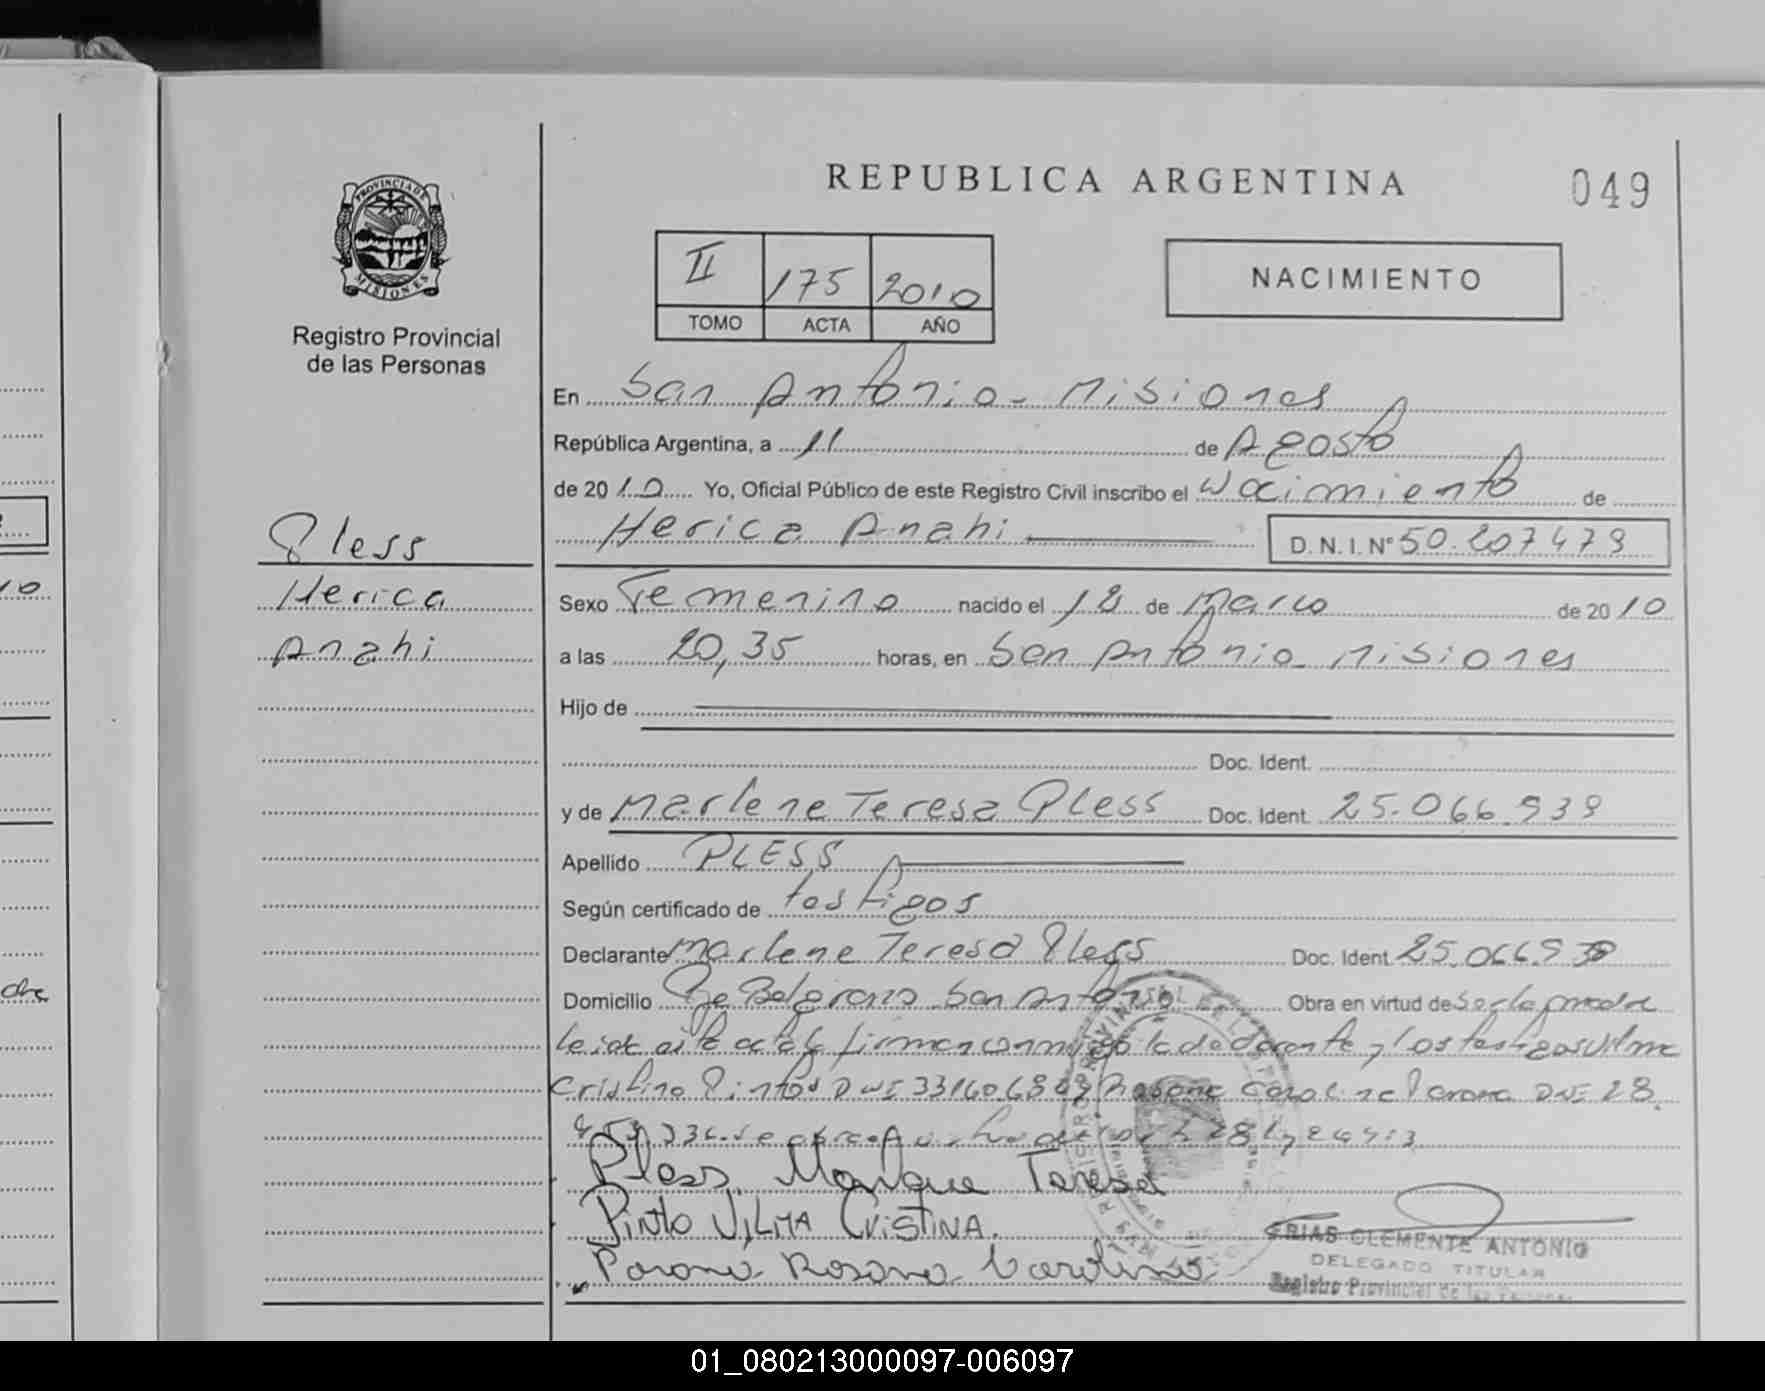 REPUBLICA ARGENTINA
049
PROVINCIA DE
MISIONES
Registro Provincial
de las Personas
II 175 2010
TOMO ACTA AÑO
NACIMIENTO
En San Antonio - Misiones
República Argentina, a 11 de Agosto
de 2010 Yo, Oficial Público de este Registro Civil inscribo el Nacimiento de
Herica Anahi D.N.I. Nº 50.207479
Pless
Herica
Anahi
Sexo Femenino nacido el 18 de Marzo de 2010
a las 20,35 horas, en San Antonio Misiones
Hijo de
Doc. Ident.
y de Marlene Teresa Pless Doc. Ident. 25.066.939
Apellido PLESS
Según certificado de testigos
Declarante Marlene Teresa Pless Doc. Ident. 25.066.939
Domicilio Belgrano San Antonio Obra en virtud de
leida acta firman conmigo la declarante y los testigos Vilma
Cristina Pinto DNI Rosana Carolina DNI 28.
Pless Teresa
Pinto VILMA CRISTINA.
Rosana Carolina
FRIAS CLEMENTE ANTONIO
DELEGADO TITULAR
Registro Provincial de las Personas
01_080213000097-006097